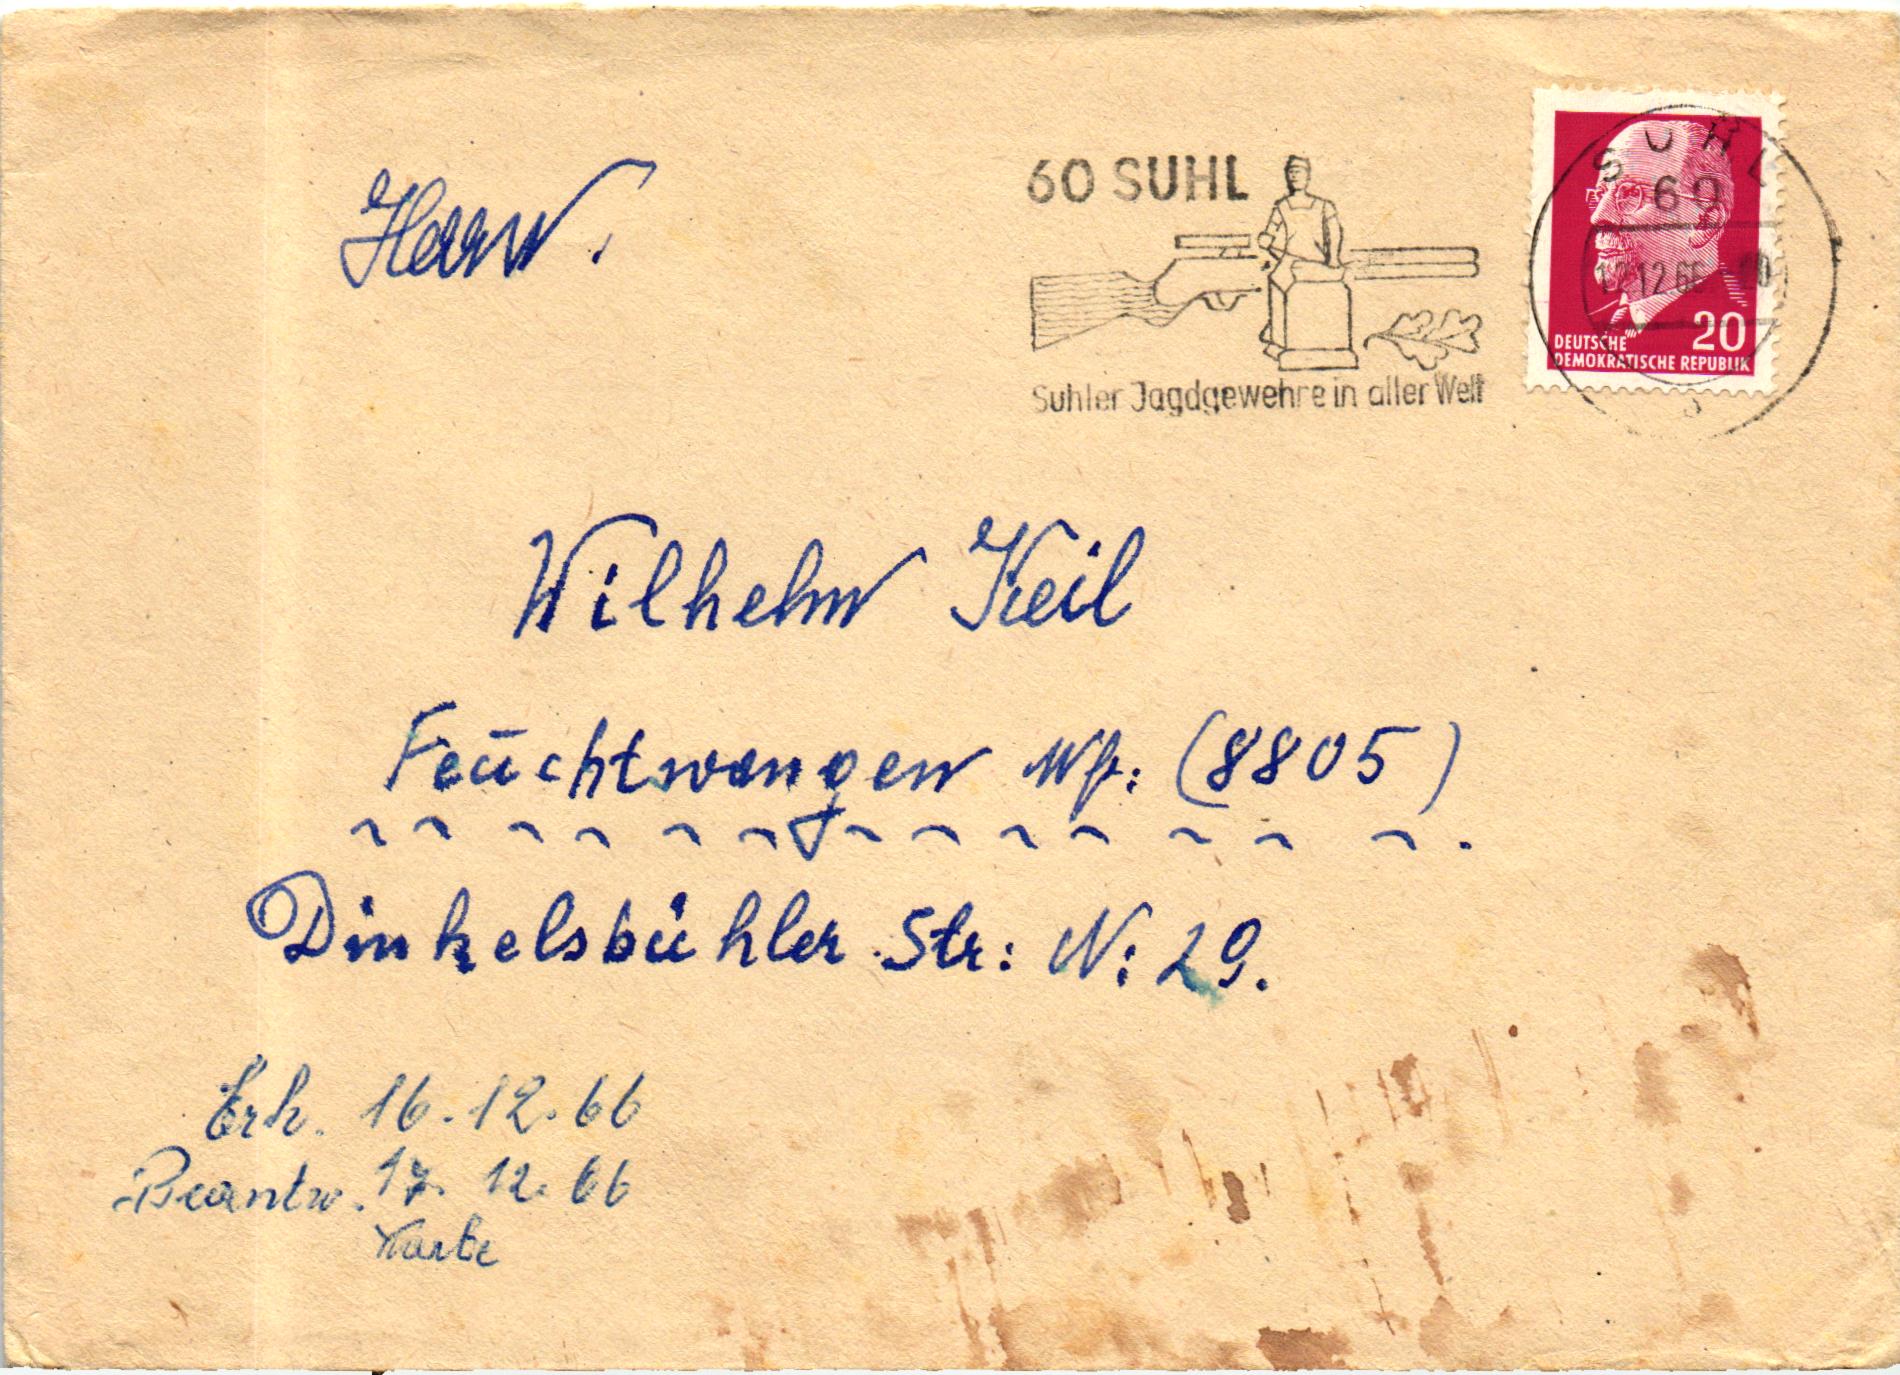 60 SUHL
Suhler Jagdgewehre in aller Welt
SUHL
60
12.12.66
20
DEUTSCHE
DEMOKRATISCHE REPUBLIK
Herrn.
Wilhelm Keil
Feuchtwangen (8805)
Dinkelsbühler Str: N: 29.
Erh. 16.12.66
Beantw. 17. 12. 66
Karte